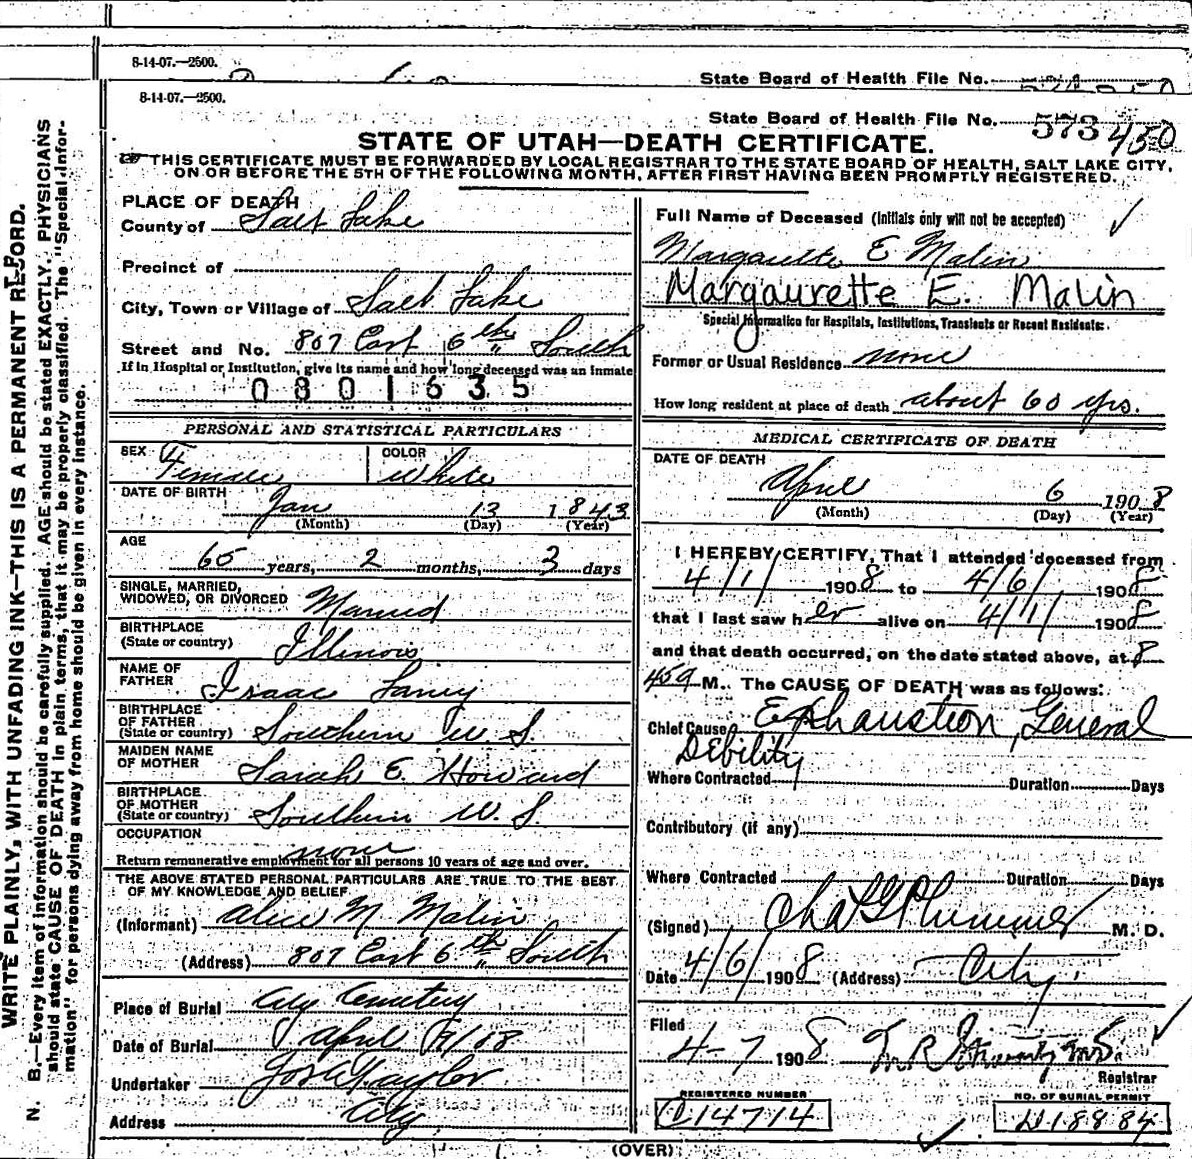 8-14-07.—2500.
State Board of Health File No.
8-14-07.—2500.
State Board of Health File No. 573 450
STATE OF UTAH—DEATH CERTIFICATE.
THIS CERTIFICATE MUST BE FORWARDED BY LOCAL REGISTRAR TO THE STATE BOARD OF HEALTH, SALT LAKE CITY,
ON OR BEFORE THE 5TH OF THE FOLLOWING MONTH, AFTER FIRST HAVING BEEN PROMPTLY REGISTERED.
WRITE PLAINLY, WITH UNFADING INK—THIS IS A PERMANENT RECORD.
N. B.—Every item of information should be carefully supplied. AGE should be stated EXACTLY. PHYSICIANS
should state CAUSE OF DEATH in plain terms, that it may be properly classified. The "Special Infor-
mation" for persons dying away from home should be given in every instance.
PLACE OF DEATH
County of Salt Lake
Precinct of
City, Town or Village of Salt Lake
Street and No. 807 East 6th South
If in Hospital or Institution, give its name and how long deceased was an inmate
0801635
PERSONAL AND STATISTICAL PARTICULARS
SEX Female COLOR White
DATE OF BIRTH Jan 13 1843
(Month) (Day) (Year)
AGE
65 years, 2 months, 3 days
SINGLE, MARRIED,
WIDOWED, OR DIVORCED Married
BIRTHPLACE
(State or country) Illinois
NAME OF
FATHER Isaac Laney
BIRTHPLACE
OF FATHER
(State or country) Southern U.S.
MAIDEN NAME
OF MOTHER Sarah E. Howard
BIRTHPLACE
OF MOTHER
(State or country) Southern U.S.
OCCUPATION none
Return remunerative employment for all persons 10 years of age and over.
THE ABOVE STATED PERSONAL PARTICULARS ARE TRUE TO THE BEST
OF MY KNOWLEDGE AND BELIEF
(Informant) Alice M. Malin
(Address) 807 East 6th South
Place of Burial City Cemetery
Date of Burial April 9/08
Undertaker Jos Taylor
Address City
Full Name of Deceased (Initials only will not be accepted)
Margaurette E Malin
Margaurette E. Malin
Special Information for Hospitals, Institutions, Transients or Recent Residents:
Former or Usual Residence none
How long resident at place of death about 60 yrs.
MEDICAL CERTIFICATE OF DEATH
DATE OF DEATH
April 6 1908
(Month) (Day) (Year)
I HEREBY CERTIFY, That I attended deceased from
4/1/ 1908 to 4/6/ 1908
that I last saw her alive on 4/1/ 1908
and that death occurred, on the date stated above, at 8
45 a M. The CAUSE OF DEATH was as follows:
Chief Cause Exhaustion, General
Debility
Where Contracted Duration Days
Contributory (if any)
Where Contracted Duration Days
(Signed) Chas G Plummer M. D.
Date 4/6/ 1908 (Address) City
Filed
4-7 1908
Registrar
REGISTERED NUMBER
D14714
NO. OF BURIAL PERMIT
D18884
(OVER)